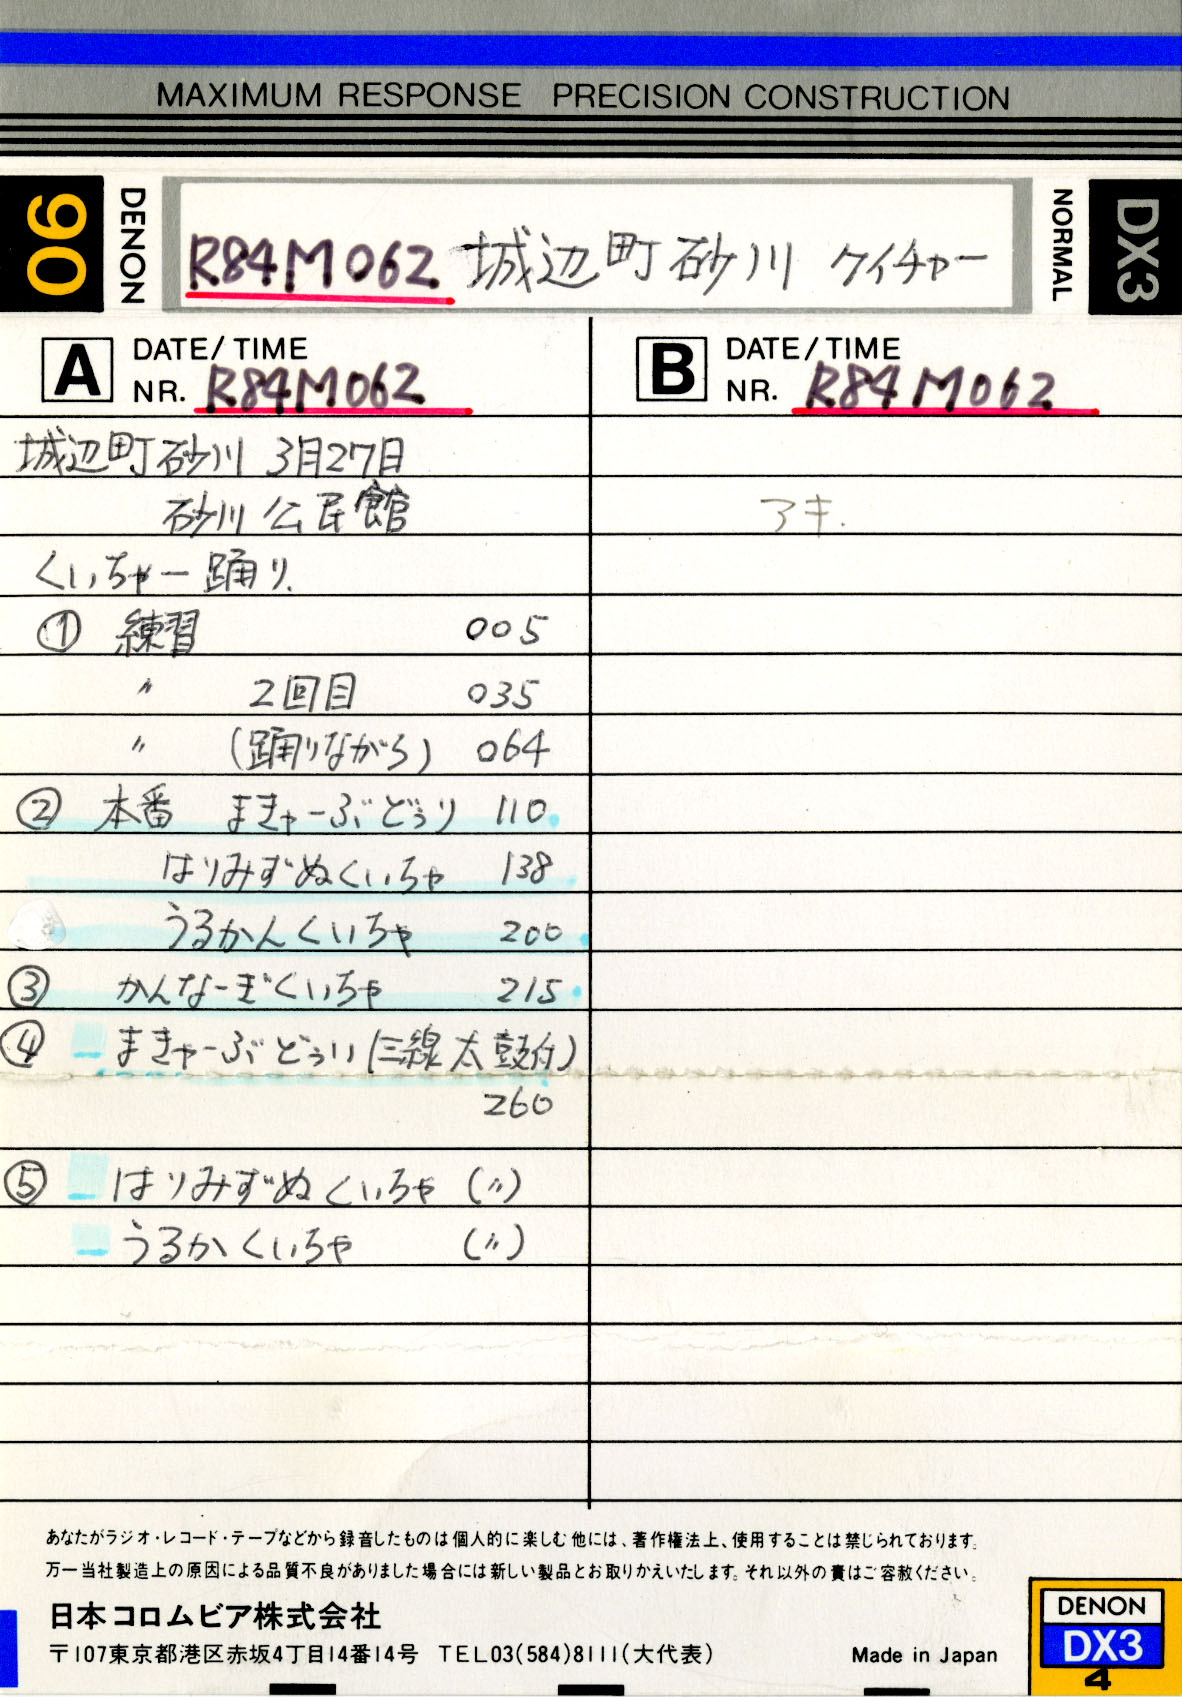 MAXIMUM RESPONSE PRECISION CONSTRUCTION
90
DENON
R84M062 城辺町砂川 クイチャー
NORMAL
DX3
A DATE/TIME
NR. R84M062
城辺町砂川 3月27日
砂川公民館
くいちゃー踊り.
① 練習 005
〃 2回目 035
〃 (踊りながら) 064
② 本番 まきゃーぶどぅり 110
はりみずぬくいちゃ 138
うるかんくいちゃ 200
③ かんなーぎくいちゃ 215
④ まきゃーぶどぅい(三線太鼓付)
260
⑤ はりみずぬくいちゃ (〃)
うるかくいちゃ (〃)
B DATE/TIME
NR. R84M062
アキ.
あなたがラジオ・レコード・テープなどから録音したものは個人的に楽しむ他には、著作権法上、使用することは禁じられております。
万一当社製造上の原因による品質不良がありました場合には新しい製品とお取りかえいたします。それ以外の責はご容赦ください。
日本コロムビア株式会社
〒107東京都港区赤坂4丁目14番14号 TEL03(584)8111(大代表)
Made in Japan
DENON
DX3
4